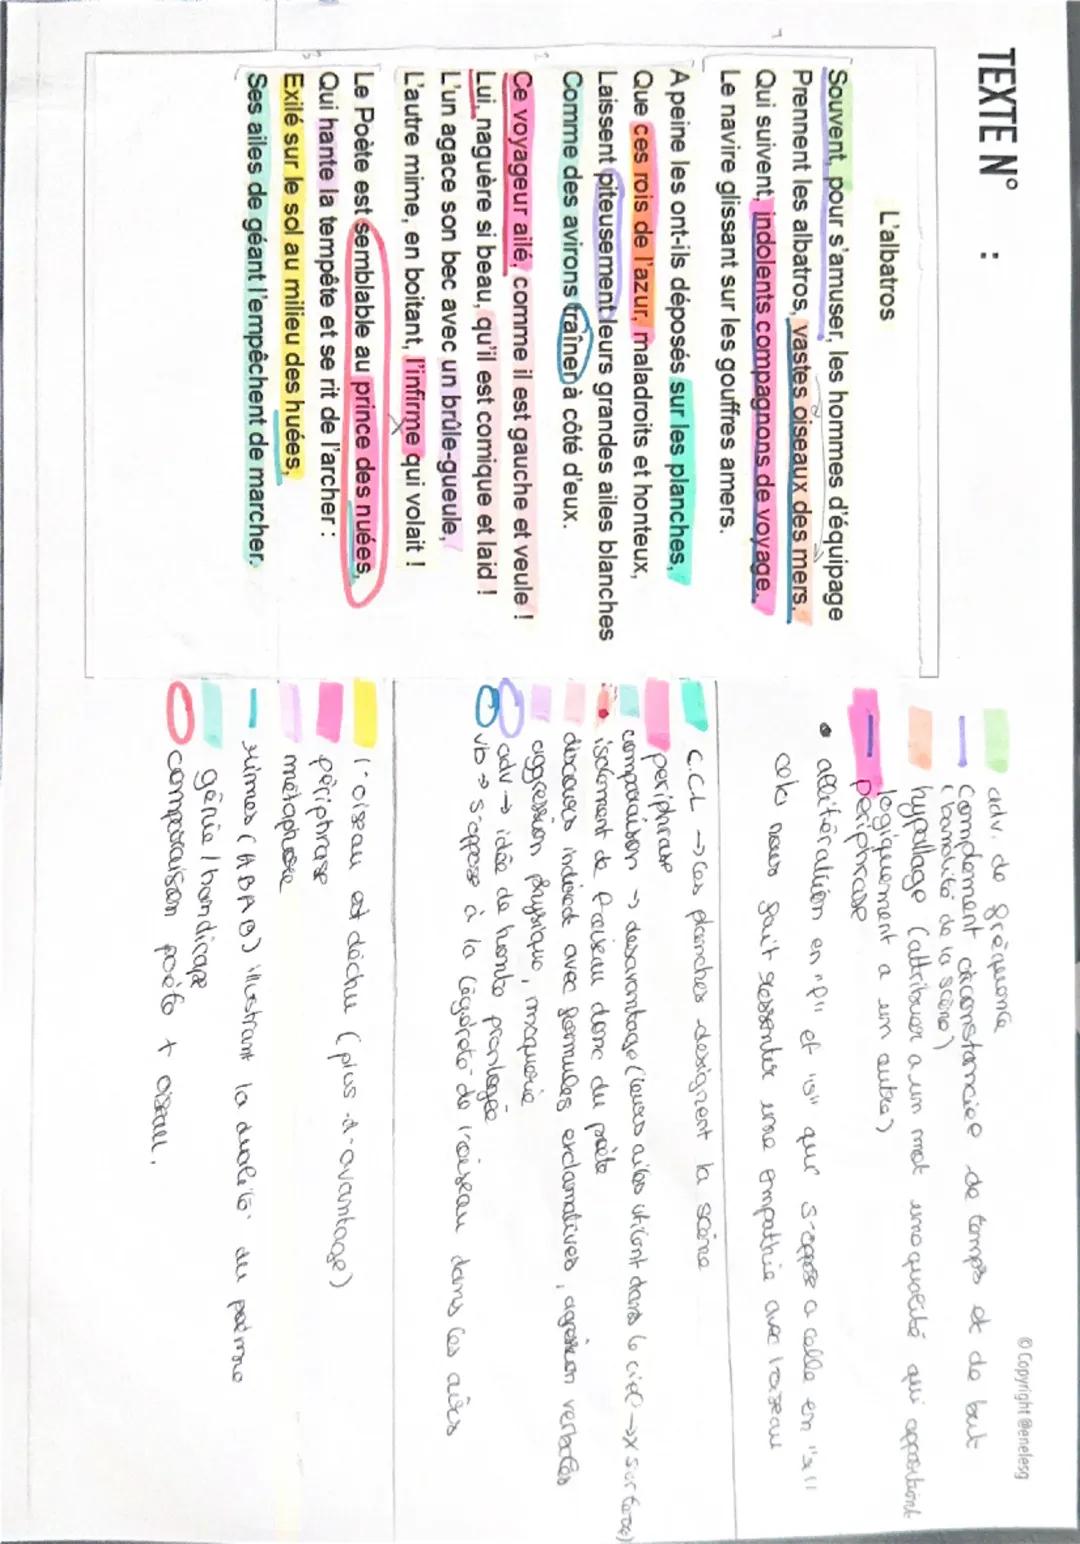 © Copyright @enelesg
TEXTE N° :
L'albatros
Souvent, pour s'amuser, les hommes d'équipage
Prennent les albatros, vastes oiseaux des mers,
Qui suivent, indolents compagnons de voyage,
Le navire glissant sur les gouffres amers.
A peine les ont-ils déposés sur les planches,
Que ces rois de l'azur, maladroits et honteux,
Laissent piteusement leurs grandes ailes blanches
Comme des avirons traîner à côté d'eux.
Ce voyageur ailé, comme il est gauche et veule !
Lui, naguère si beau, qu'il est comique et laid !
L'un agace son bec avec un brûle-gueule,
L'autre mime, en boitant, l'infirme qui volait !
Le Poète est semblable au prince des nuées,
Qui hante la tempête et se rit de l'archer :
Exilé sur le sol au milieu des huées,
Ses ailes de géant l'empêchent de marcher.
adv. de fréquence
complement circonstanciee de temps et de but
(banalité de la scène)
hypallage (attribuer a un mot une qualité qui appartient
logiquement a un autre)
périphrase
• allitération en "f" et "s" qui s'oppose a celle en "s"
cela nous fait ressentir une empathie avec l'oiseau
C.C.L → les planches designent la scène
periphrase
comparaison → desavantage (leurs ailes utilent dans le ciel → x sur terre)
isolement de l'oiseau donc du poète
discours indirect avec formules exclamatives, agression verbales
aggression physique, moquerie
adv → idée de honte prolongée
vb → s'oppose à la légèreté de l'oiseau dans les airs
l'oiseau est déchu (plus d'avantage)
périphrase
métaphore
rimes (ABAB) illustrant la dualité du poème
génie / handicape
comparaison poète + oiseau.